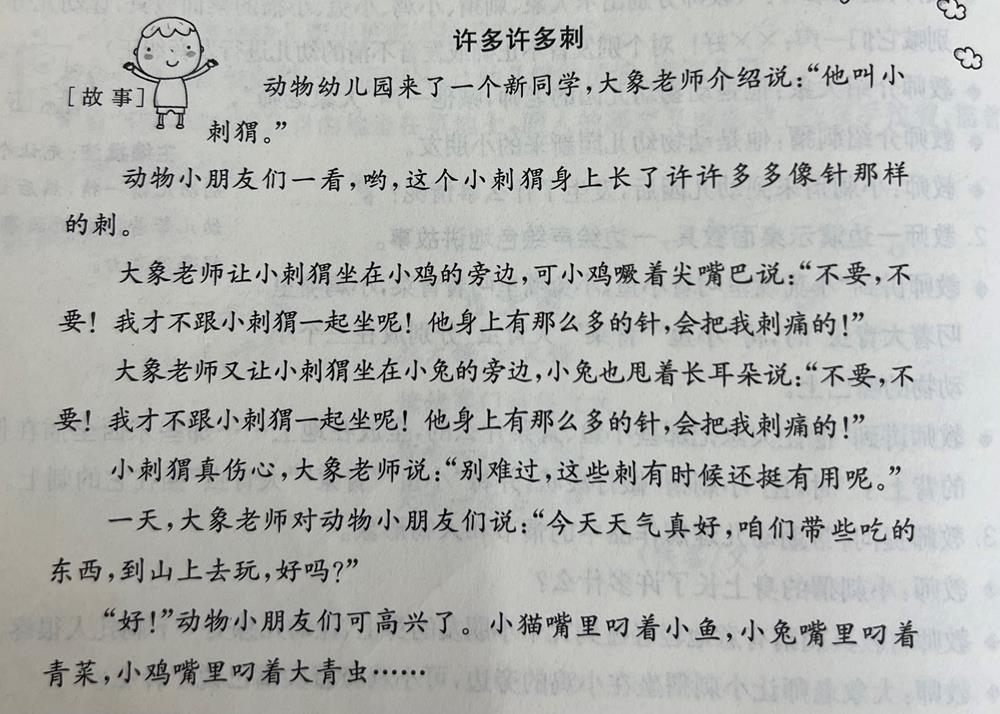 许多许多刺
[故事]
动物幼儿园来了一个新同学，大象老师介绍说：“他叫小
刺猬。”
动物小朋友们一看，哟，这个小刺猬身上长了许许多多像针那样
的刺。
大象老师让小刺猬坐在小鸡的旁边，可小鸡噘着尖嘴巴说：“不要，不
要！我才不跟小刺猬一起坐呢！他身上有那么多的针，会把我刺痛的！”
大象老师又让小刺猬坐在小兔的旁边，小兔也甩着长耳朵说：“不要，不
要！我才不跟小刺猬一起坐呢！他身上有那么多的针，会把我刺痛的！”
小刺猬真伤心，大象老师说：“别难过，这些刺有时候还挺有用呢。”
一天，大象老师对动物小朋友们说：“今天天气真好，咱们带些吃的
东西，到山上去玩，好吗？”
“好！”动物小朋友们可高兴了。小猫嘴里叼着小鱼，小兔嘴里叼着
青菜，小鸡嘴里叼着大青虫……